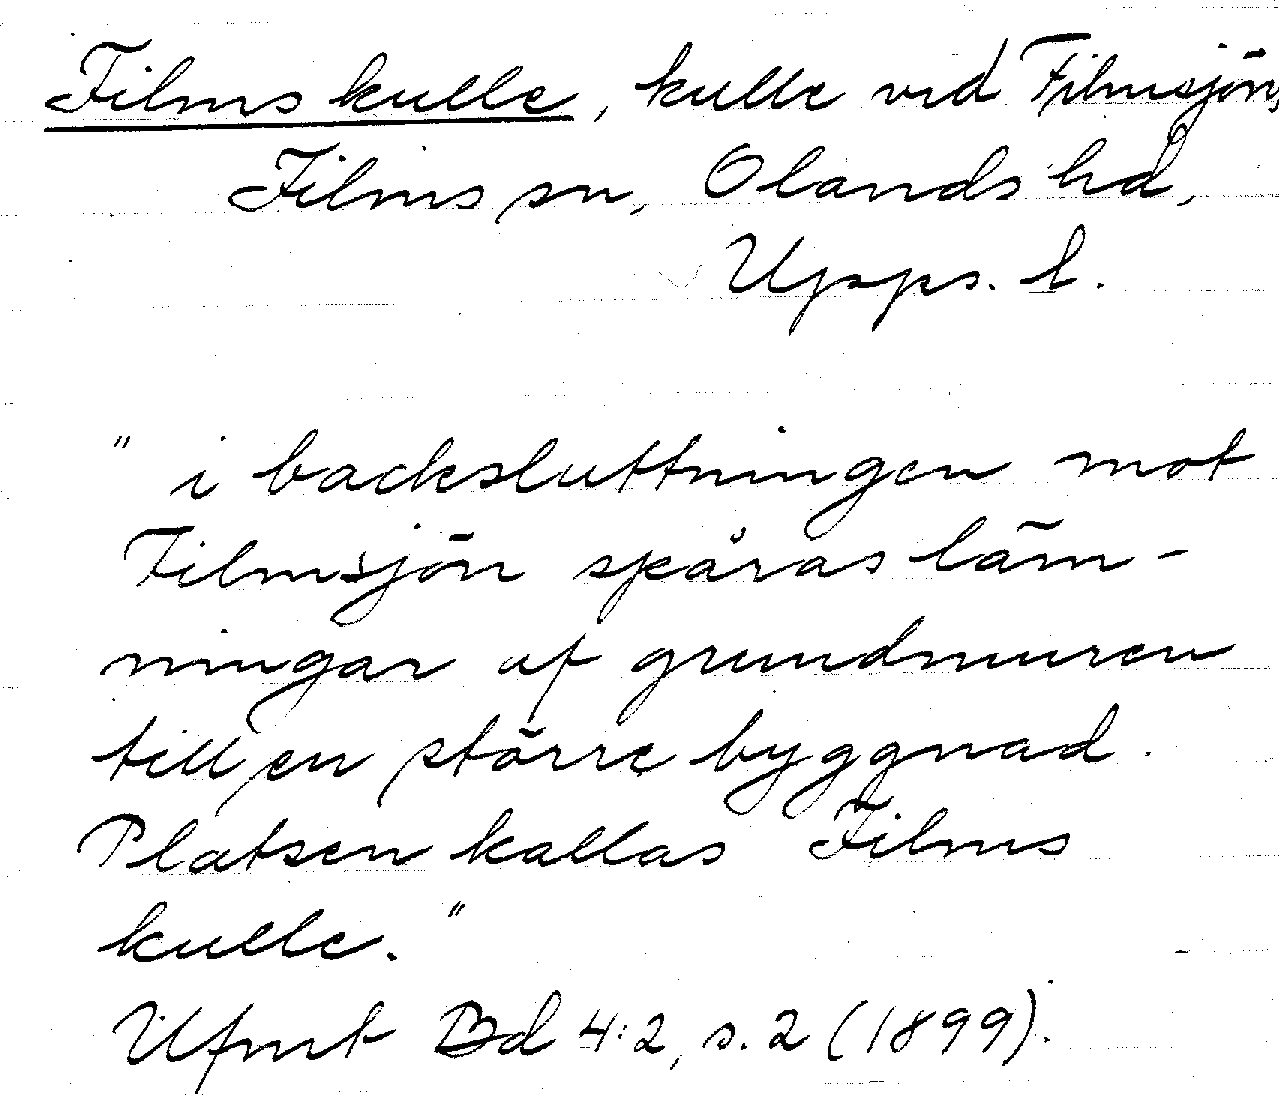 Films kulle, kulle vid Filmsjön,
Films sn, Olands hd,
Upps. l.
" i backsluttningen mot
Filmsjön spåras läm-
ningar af grundmuren
till en större byggnad.
Platsen kallas Films
kulle."
Ufmt Bd 4:2, s. 2 (1899).